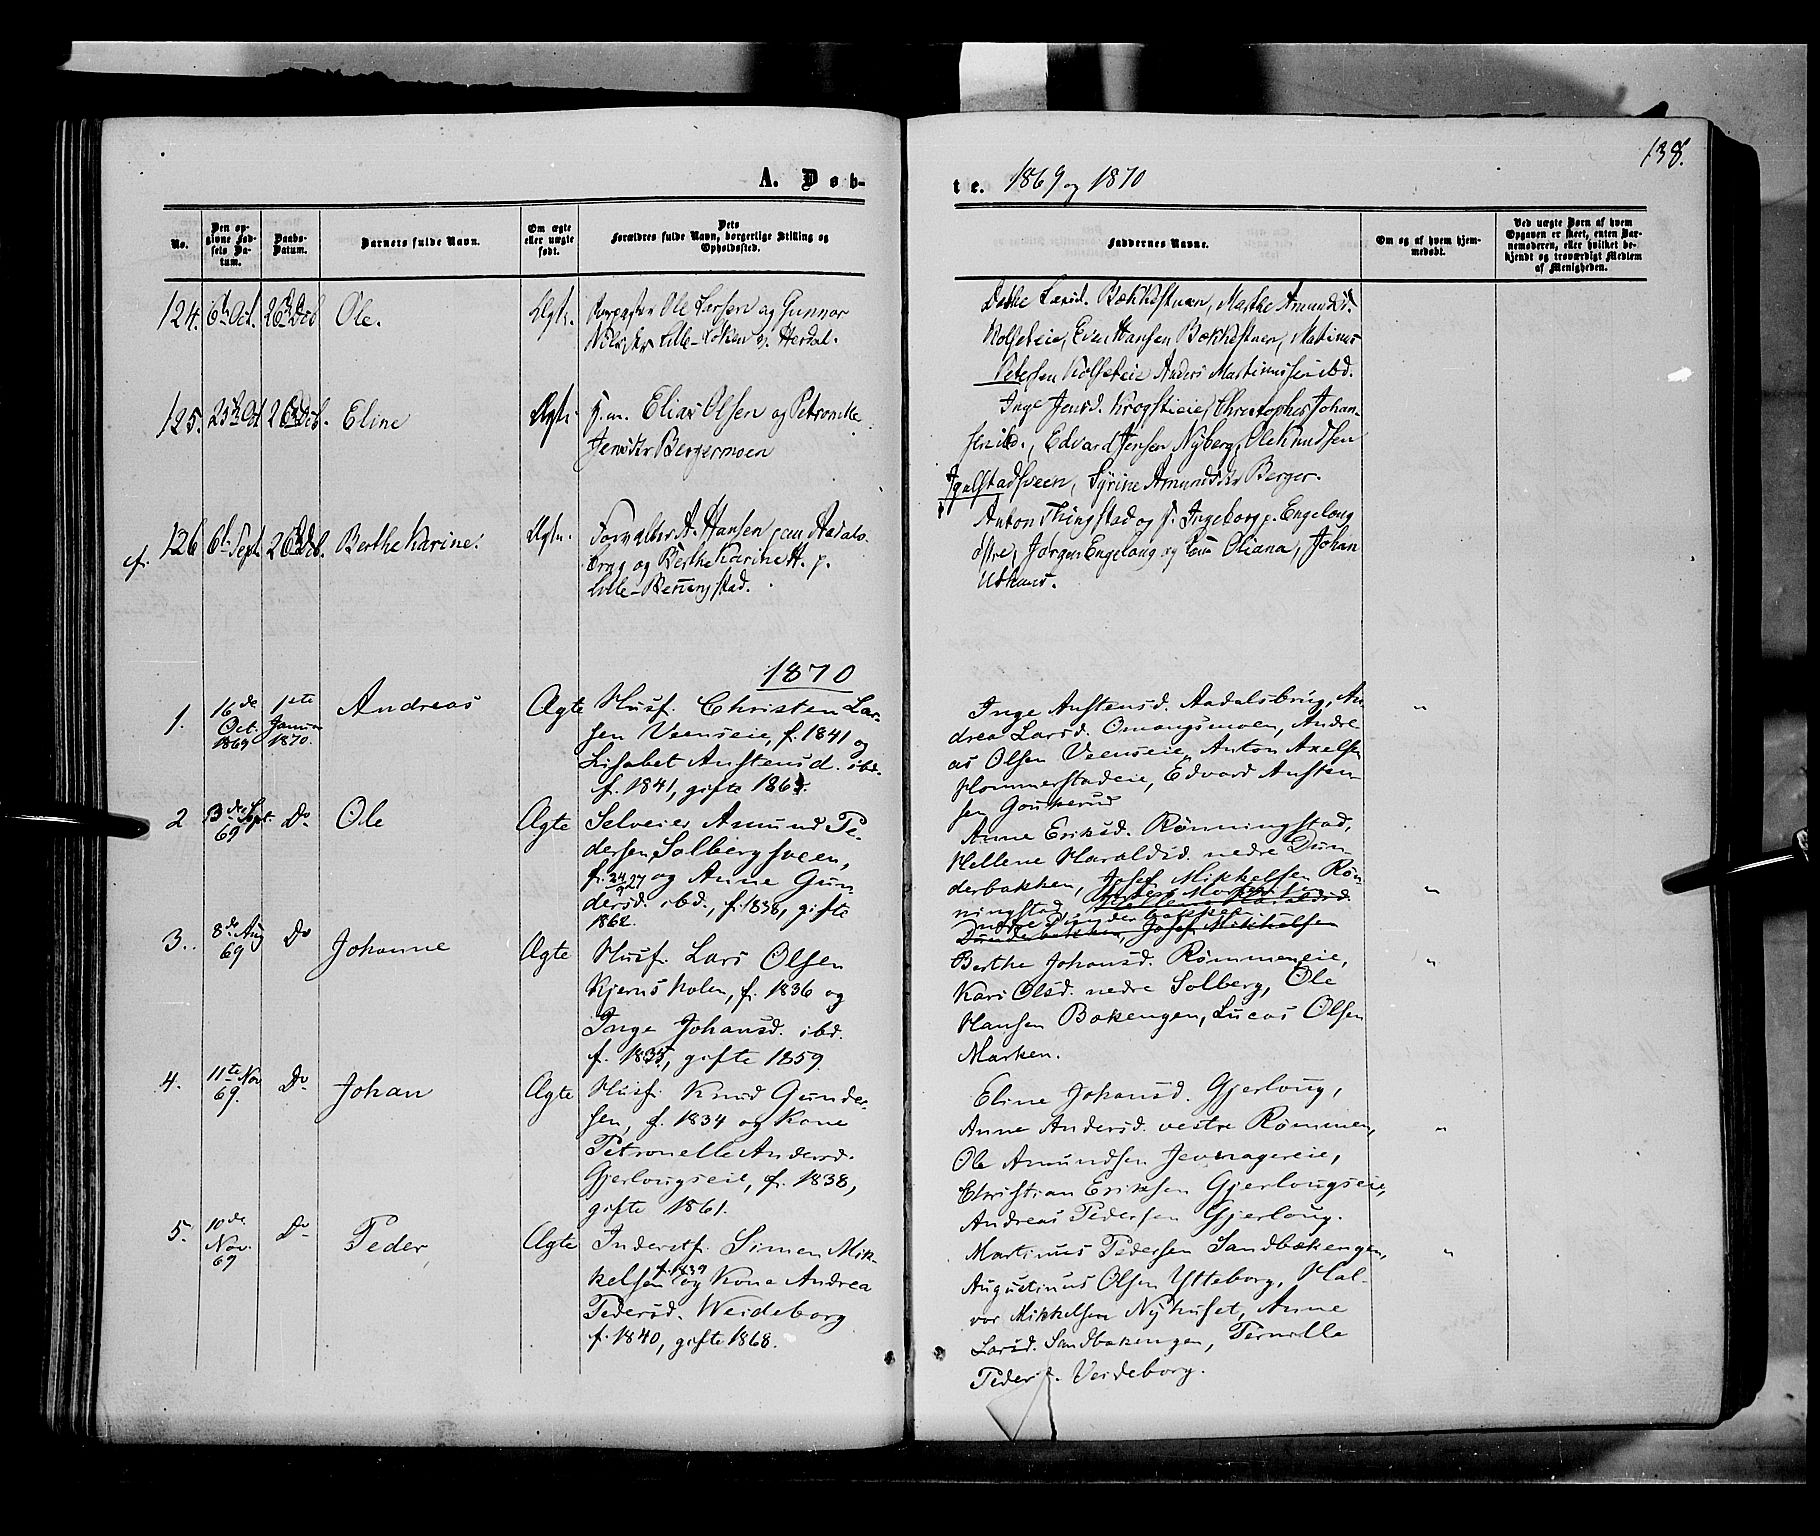 138.
A. Døb-
te. 1869 og 1870
No.
Den op-
givne Fød-
sels Da-
tum.
Daabs-
Datum.
Barnets fulde Navn.
Om ægte
eller uægte
født.
Dets
Forældres fulde Navn, borgerlige Stilling og
Opholdssted.
Faddernes Navne.
Om og af hvem hjem-
medøbt.
Ved uægte Børn af hvem
Opgaven er skeet, enten Bar-
nemoderen, eller hvilket be-
kjendt og troværdigt Medlem
af Menigheden.
124. 6te Oct. 26de Dcb. Ole. Ægte.
Ole Larsen og Gunnor
Nilsdtr Lille-Løken
Larsd. Bækkestuen, Marthe Amundsd.
Kolfsteie, Even Hansen Bækkestuen, Matinus
Petersen Kolfsteie Anders Martinussen ibd.
125. 25de Oct 26de Dcb. Eline Ægte
Elias Olsen og Petronelle
Jensdtr Bergermoen
Inge Jensd. Krogstieie, Christopher Johan-
sen ibd., Edvard Jensen Nyberg, Ole Knudsen
Sveen, Syrine Amundsdtr Berger.
cf. 126 6te Sept. 26de Dcb. Berthe Karine. Ægte.
Forvalter A. Hansen paa Aadals-
brug og Berthe Karine H. p.
Lille-
Anton Thingstad og F. Ingeborg p. Engelaug
østre, Jørgen Engelaug og Kone Oliana, Johan
Uthuus.
1870
1. 16de Oct. 1869 1ste Januar 1870. Andreas Ægte
Husf. Christen Lar-
sen Veenseie, f. 1841 og
Lisabet Austensd. ibd.
f. 1841, gifte
Inge Austensd. Aadalsbrug, An
drea Larsd. Omangsmoen, Andre
as Olsen Veenseie, Anton Axelsen
Hommerstadeie, Edvard Austen-
sen Gaukerud
2 13de Sept. 69 Do Ole Ægte
Selveier Amund Pe-
dersen Solbergsveen,
f. 24/9 27 og Anne Gun
dersd. ibd., f. 1838, gifte
1862.
Anne Eriksd. Rønningstad,
Hellene Haraldsd. nedre Dun-
derbakken, Josef Mikkelsen Røn
ningstad,
Dunderbakken, Josef Mikkelsen
3. 8de Aug 69 Do Johanne Ægte
Husf. Lars Olsen
Kjernsholen, f. 1836 og
Inge Johansd. ibd.
f. 1835, gifte 1859.
Berthe Johansd. Rømmeneie,
Kari Olsd. nedre Solberg, Ole
Hansen Bakengen, Lucas Olsen
Marken.
4. 11te Nov 69. Do Johan Ægte
Husf. Knud Gunder-
sen, f. 1834 og Kone
Petronelle Andersd.
Gjerlougseie, f. 1838,
gifte 1861.
Eline Johansd. Gjerloug,
Anne Andersd. vestre Rømmen,
Ole Amundsen Jevnagereie,
Christian Eriksen Gjerlougseie,
Andreas Pedersen Gjerloug.
5. 10de Nov. 69 Do Peder Ægte
Inderstf. Simen Mik-
kelsen f. 1839 og Kone Andrea
Pedersd. Weideborg
f. 1840, gifte 1868.
Martinus Pedersen Sandbakengen,
Augustinus Olsen Ytteborg, Hal-
vor Mikkelsen Nyhuset, Anne
Larsd. Sandbakengen, Pernille
Pedersd. Veideborg.